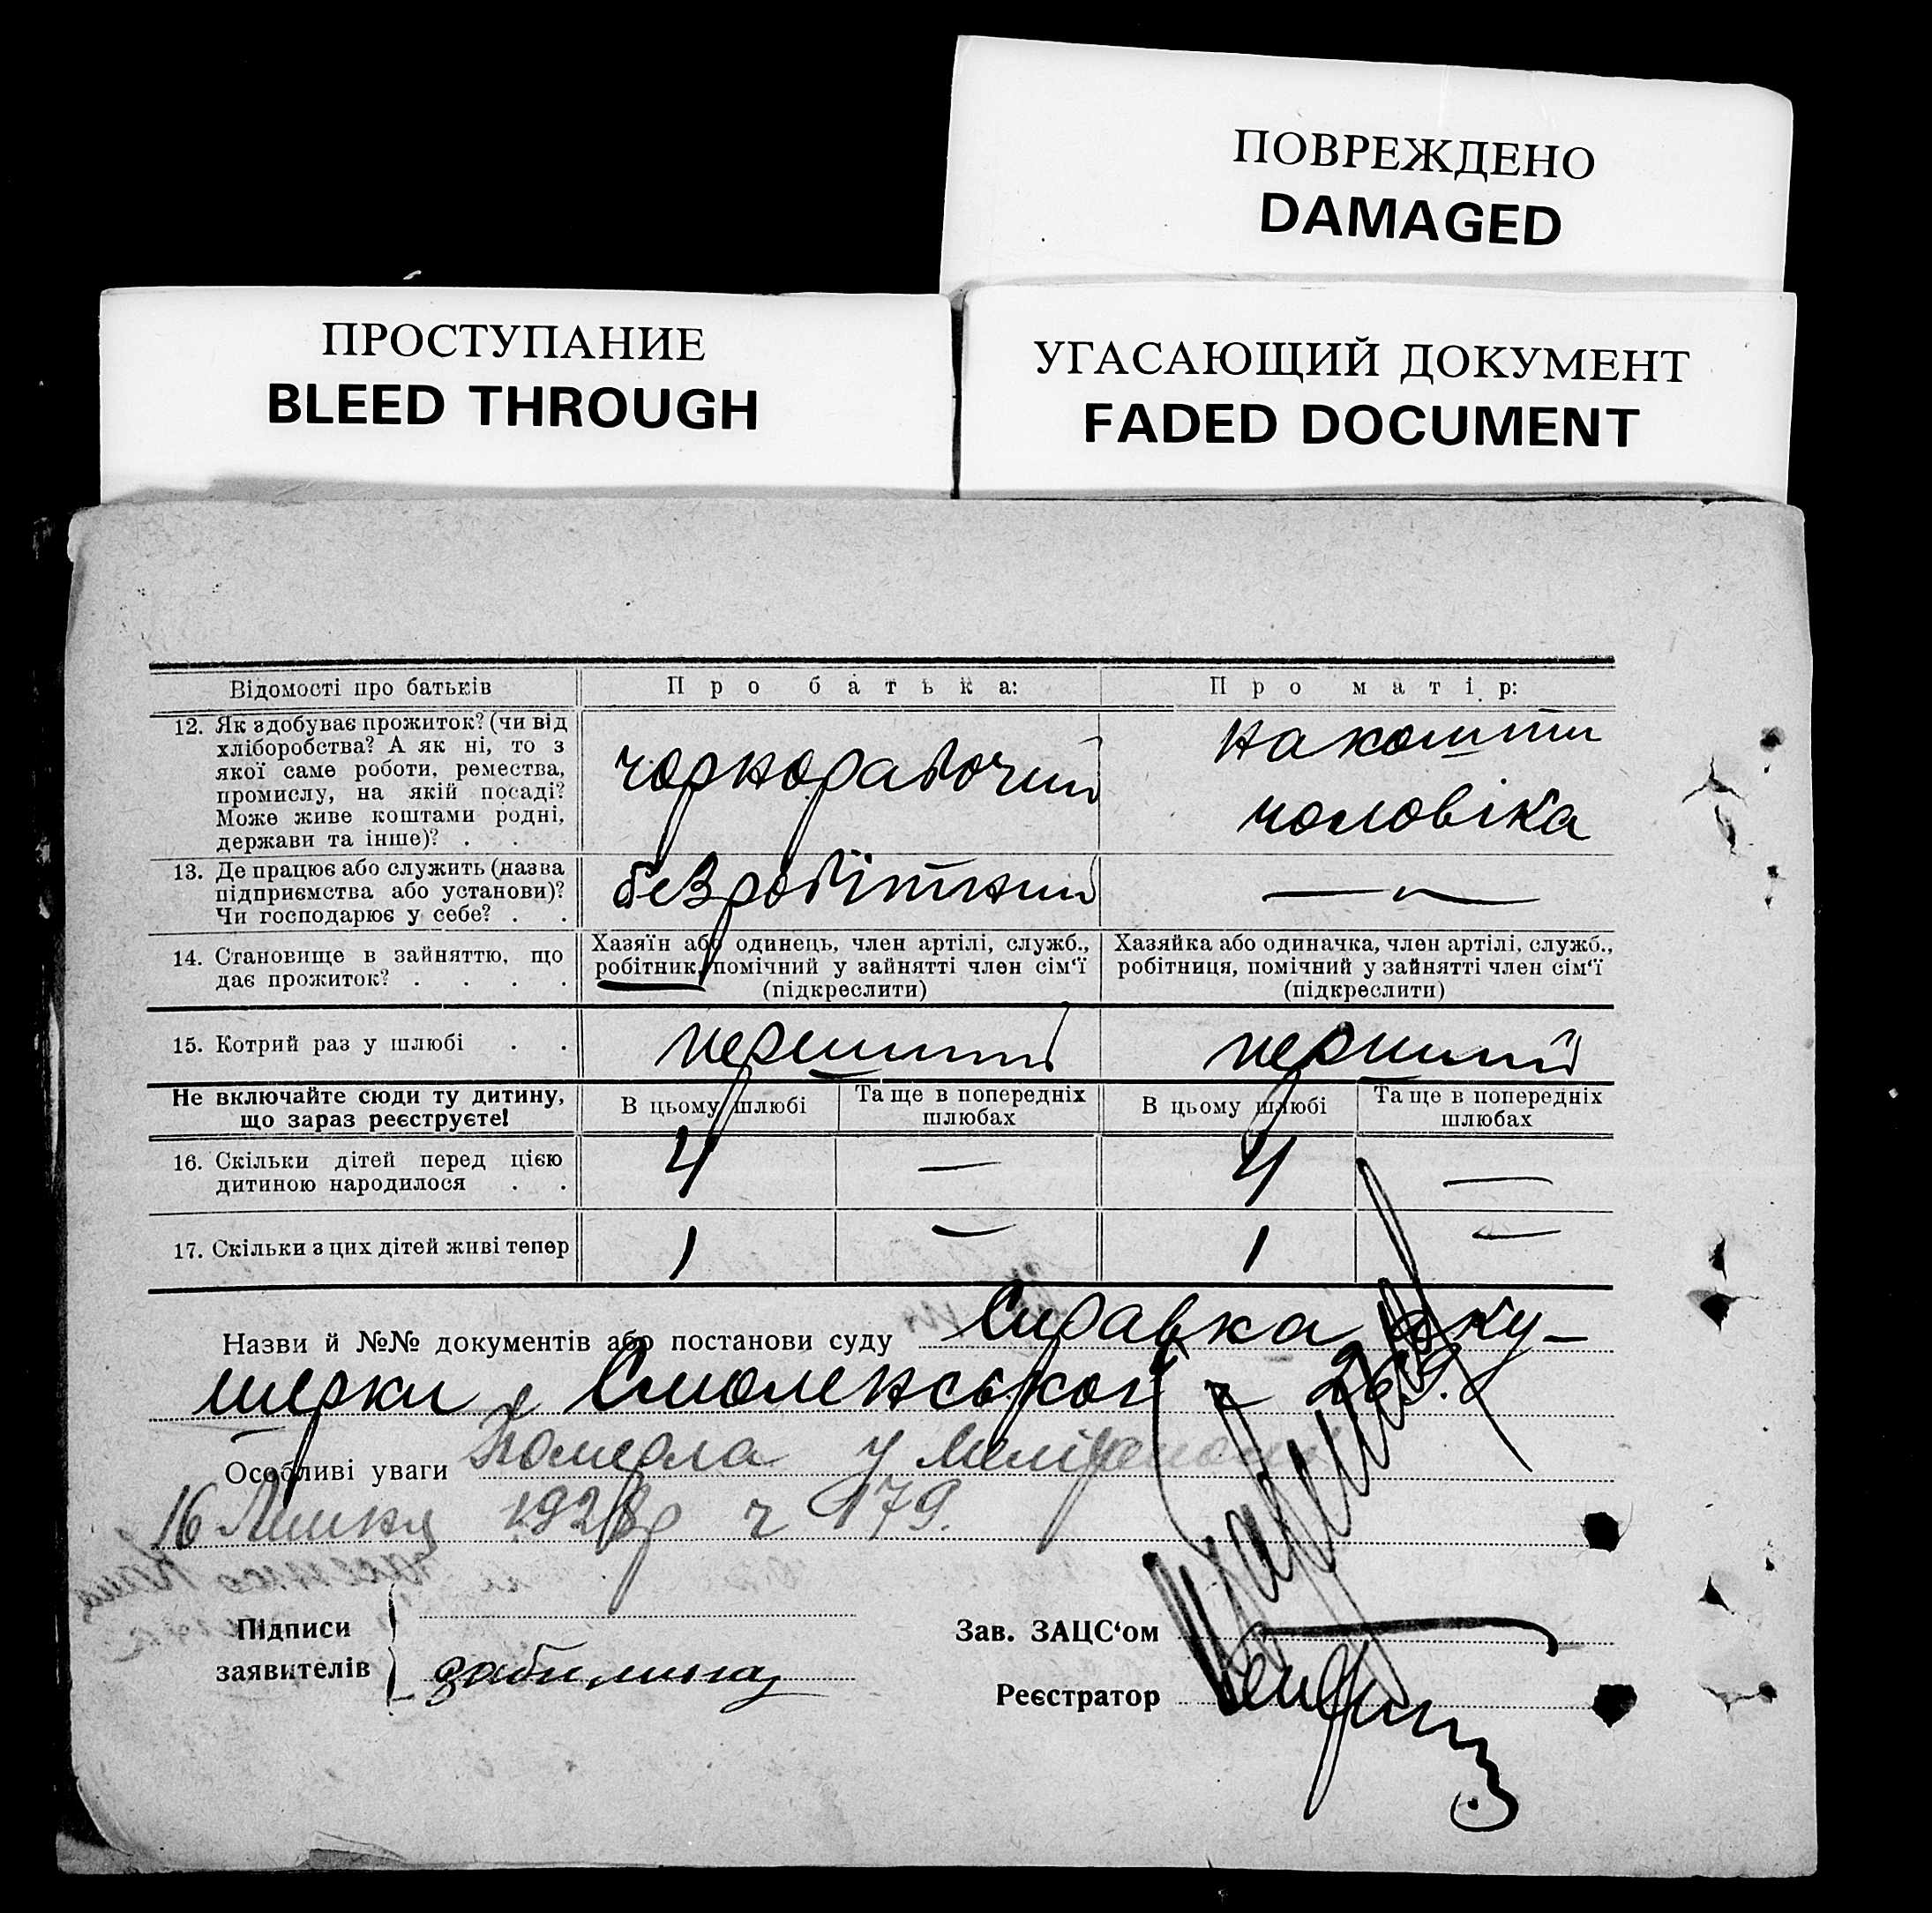 ПОВРЕЖДЕНО
DAMAGED
ПРОСТУПАНИЕ
BLEED THROUGH
УГАСАЮЩИЙ ДОКУМЕНТ
FADED DOCUMENT
Відомості про батьків
Про батька:
Про матір:
12. Як здобуває прожиток? (чи від
хліборобства? А як ні, то з
якої саме роботи, ремества,
промислу, на якій посаді?
Може живе коштами родні,
держави та інше)? . . .
чорнорабочий
на кошти
чоловіка
13. Де працює або служить (назва
підприємства або установи)?
Чи господарює у себе? . .
безробітний
— „ —
14. Становище в зайняттю, що
дає прожиток? . . . .
Хазяїн або одинець, член артілі, служб.,
робітник, помічний у зайнятті член сім‘ї
(підкреслити)
Хазяйка або одиначка, член артілі, служб.,
робітниця, помічний у зайнятті член сім‘ї
(підкреслити)
15. Котрий раз у шлюбі . .
перший
перший
Не включайте сюди ту дитину,
що зараз реєструєте!
В цьому шлюбі
Та ще в попередніх
шлюбах
В цьому шлюбі
Та ще в попередніх
шлюбах
16. Скільки дітей перед цією
дитиною народилося . .
4
—
4
—
17. Скільки з цих дітей живі тепер
1
—
1
—
Назви й №№ документів або постанови суду Справка аку-
шерки Смоленської
Особливі уваги Померла у
16 Липня 1928р ч 179.
Підписи
заявителів
Зав. ЗАЦС‘ом
Реєстратор